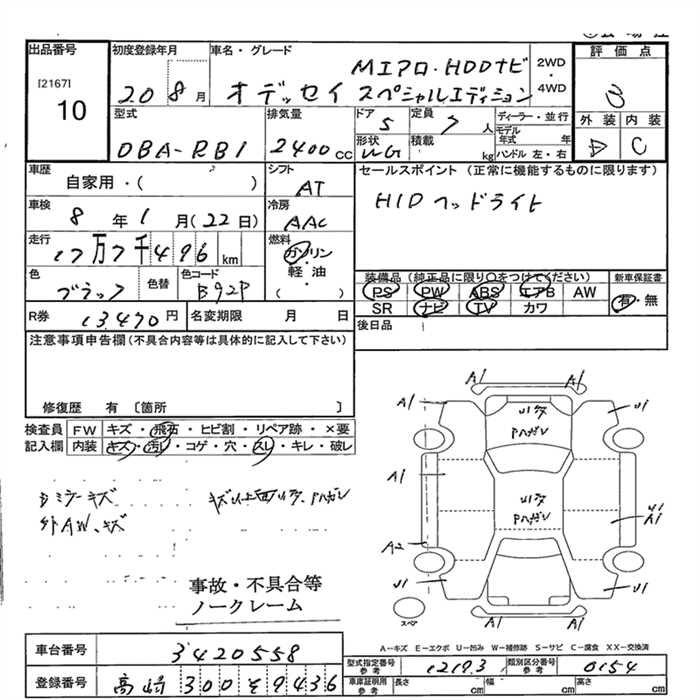 出品番号
[2167]
10
初度登録年月
20 8月
車名・グレード
Mエアロ・HDDナビ
オデッセイ スペシャルエディション
2WD
・
4WD
評価点
外装 内装
D C
型式
DBA-RB1
排気量
2400cc
ドア
5
定員
7人
ディーラー・並行
モデル年式 年
ハンドル 左・右
形状
WG
積載
kg
車歴
自家用・( )
シフト
AT
セールスポイント (正常に機能するものに限ります)
HIDヘッドライト
車検
8年1月(22日)
冷房
AAC
走行
17万7千496km
燃料
ガソリン
・
軽・油
( )
色
ブラック
色替
色コード
B92P
装備品 (純正品に限り○をつけてください)
PS PW ABS エアB AW
SR ナビ TV カワ
新車保証書
有・無
R券
13,470円
名変期限 月 日
後日品
注意事項申告欄(不具合内容等は具体的に記入して下さい)
修復歴 有 〔箇所 〕
検査員記入欄
FW キズ・飛石・ヒビ割・リペア跡・×要
内装 キズ・汚れ・コゲ・穴・スレ・キレ・破レ
ミラーキズ
外AW、キズ
A1 A1
A1 U1
Pハガレ
A1
U1
A1
Pハガレ
A2
U1 U1
スペア
A1 A1
事故・不具合等
ノークレーム
A−キズ E−エクボ U−凹み W−補修跡 S−サビ C−腐食 XX−交換済
車台番号
3420558
登録番号
高崎 300 そ 9436
型式指定番号
参考
12193
類別区分番号
参考
0154
車庫証明用
参考
長さ cm 幅 cm 高さ cm